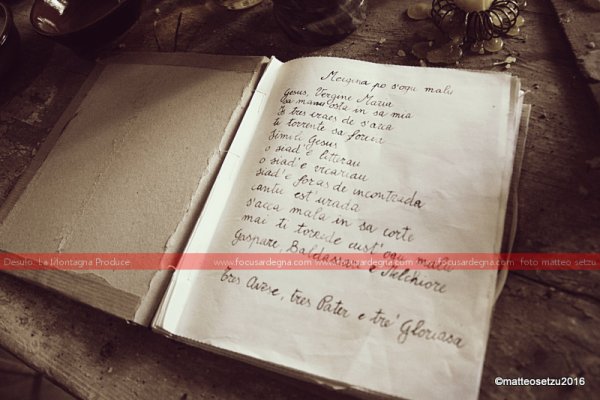 Mexigina po s'ogu malu
Gesus, Vergine Maria
Sa manu osta in sa mia
E tres craes de s'arca
ti torrente sa forcia
Semili Gesus
o siad'e litterau
o siad'e vicariau
siad'e foras de incontrada
cantu est'urada
s'acca mala in sa corte
mai ti torrede cust'ogu malu
Gaspare, Baldassare e Melchiore
tres Avese, tres Pater e tre' Gloriasa
Desulo: La Montagna Produce www.focusardegna.com www.focusardegna.com www.focusardegna.com foto matteo setzu
©matteosetzu2016